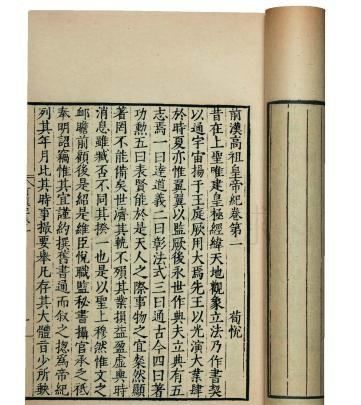 前漢高祖皇帝紀卷第一
荀悅
昔在上聖唯建皇極經緯天地觀象立法乃作書契
以通宇宙揚于王庭厥用大焉先王以光演大業肆
於時夏亦惟翼翼以監厥後永世作典夫立典有五
志焉一曰達道義二曰彰法式三曰通古今四曰著
功勲五曰表賢能於是天人之際事物之宜粲然顯
著罔不能備矣世濟其軌不殞其業損益盈虛與時
消息雖臧否不同其揆一也是以聖上穆然惟文之
卹瞻前顧後是紹是維臣悅職監秘書攝官承之祗
奉明詔竊惟其宜謹約撰舊書通而叙之揔為帝紀
列其年月比其時事撮要舉凡存其大體旨少所缺